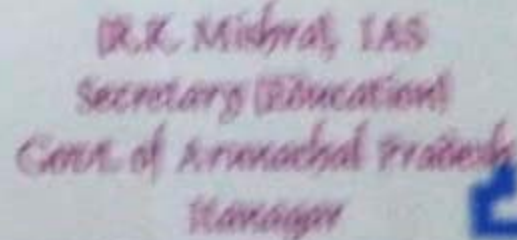 (R.K. Mishra), IAS
Secretary (Education)
Govt. of Arunachal Pradesh
Itanagar